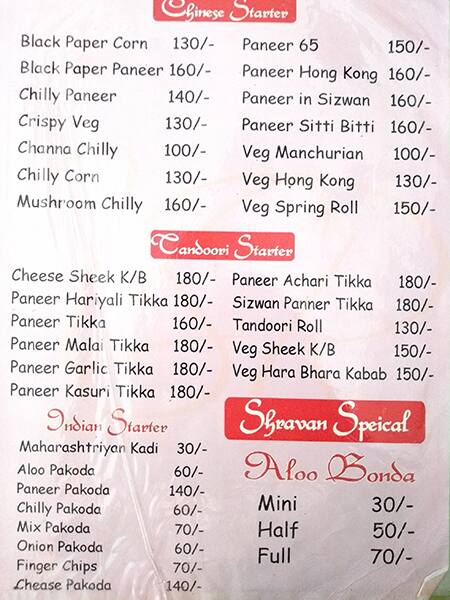 Chinese Starter
Black Paper Corn 130/-
Black Paper Paneer 160/-
Chilly Paneer 140/-
Crispy Veg 130/-
Channa Chilly 100/-
Chilly Corn 130/-
Mushroom Chilly 160/-
Paneer 65 150/-
Paneer Hong Kong 160/-
Paneer in Sizwan 160/-
Paneer Sitti Bitti 160/-
Veg Manchurian 100/-
Veg Hong Kong 130/-
Veg Spring Roll 150/-
Tandoori Starter
Cheese Sheek K/B 180/-
Paneer Hariyali Tikka 180/-
Paneer Tikka 160/-
Paneer Malai Tikka 180/-
Paneer Garlic Tikka 180/-
Paneer Kasuri Tikka 180/-
Paneer Achari Tikka 180/-
Sizwan Panner Tikka 180/-
Tandoori Roll 130/-
Veg Sheek K/B 150/-
Veg Hara Bhara Kabab 150/-
Indian Starter
Maharashtriyan Kadi 30/-
Aloo Pakoda 60/-
Paneer Pakoda 140/-
Chilly Pakoda 60/-
Mix Pakoda 70/-
Onion Pakoda 60/-
Finger Chips 70/-
Chease Pakoda 140/-
Shravan Speical
Aloo Bonda
Mini 30/-
Half 50/-
Full 70/-